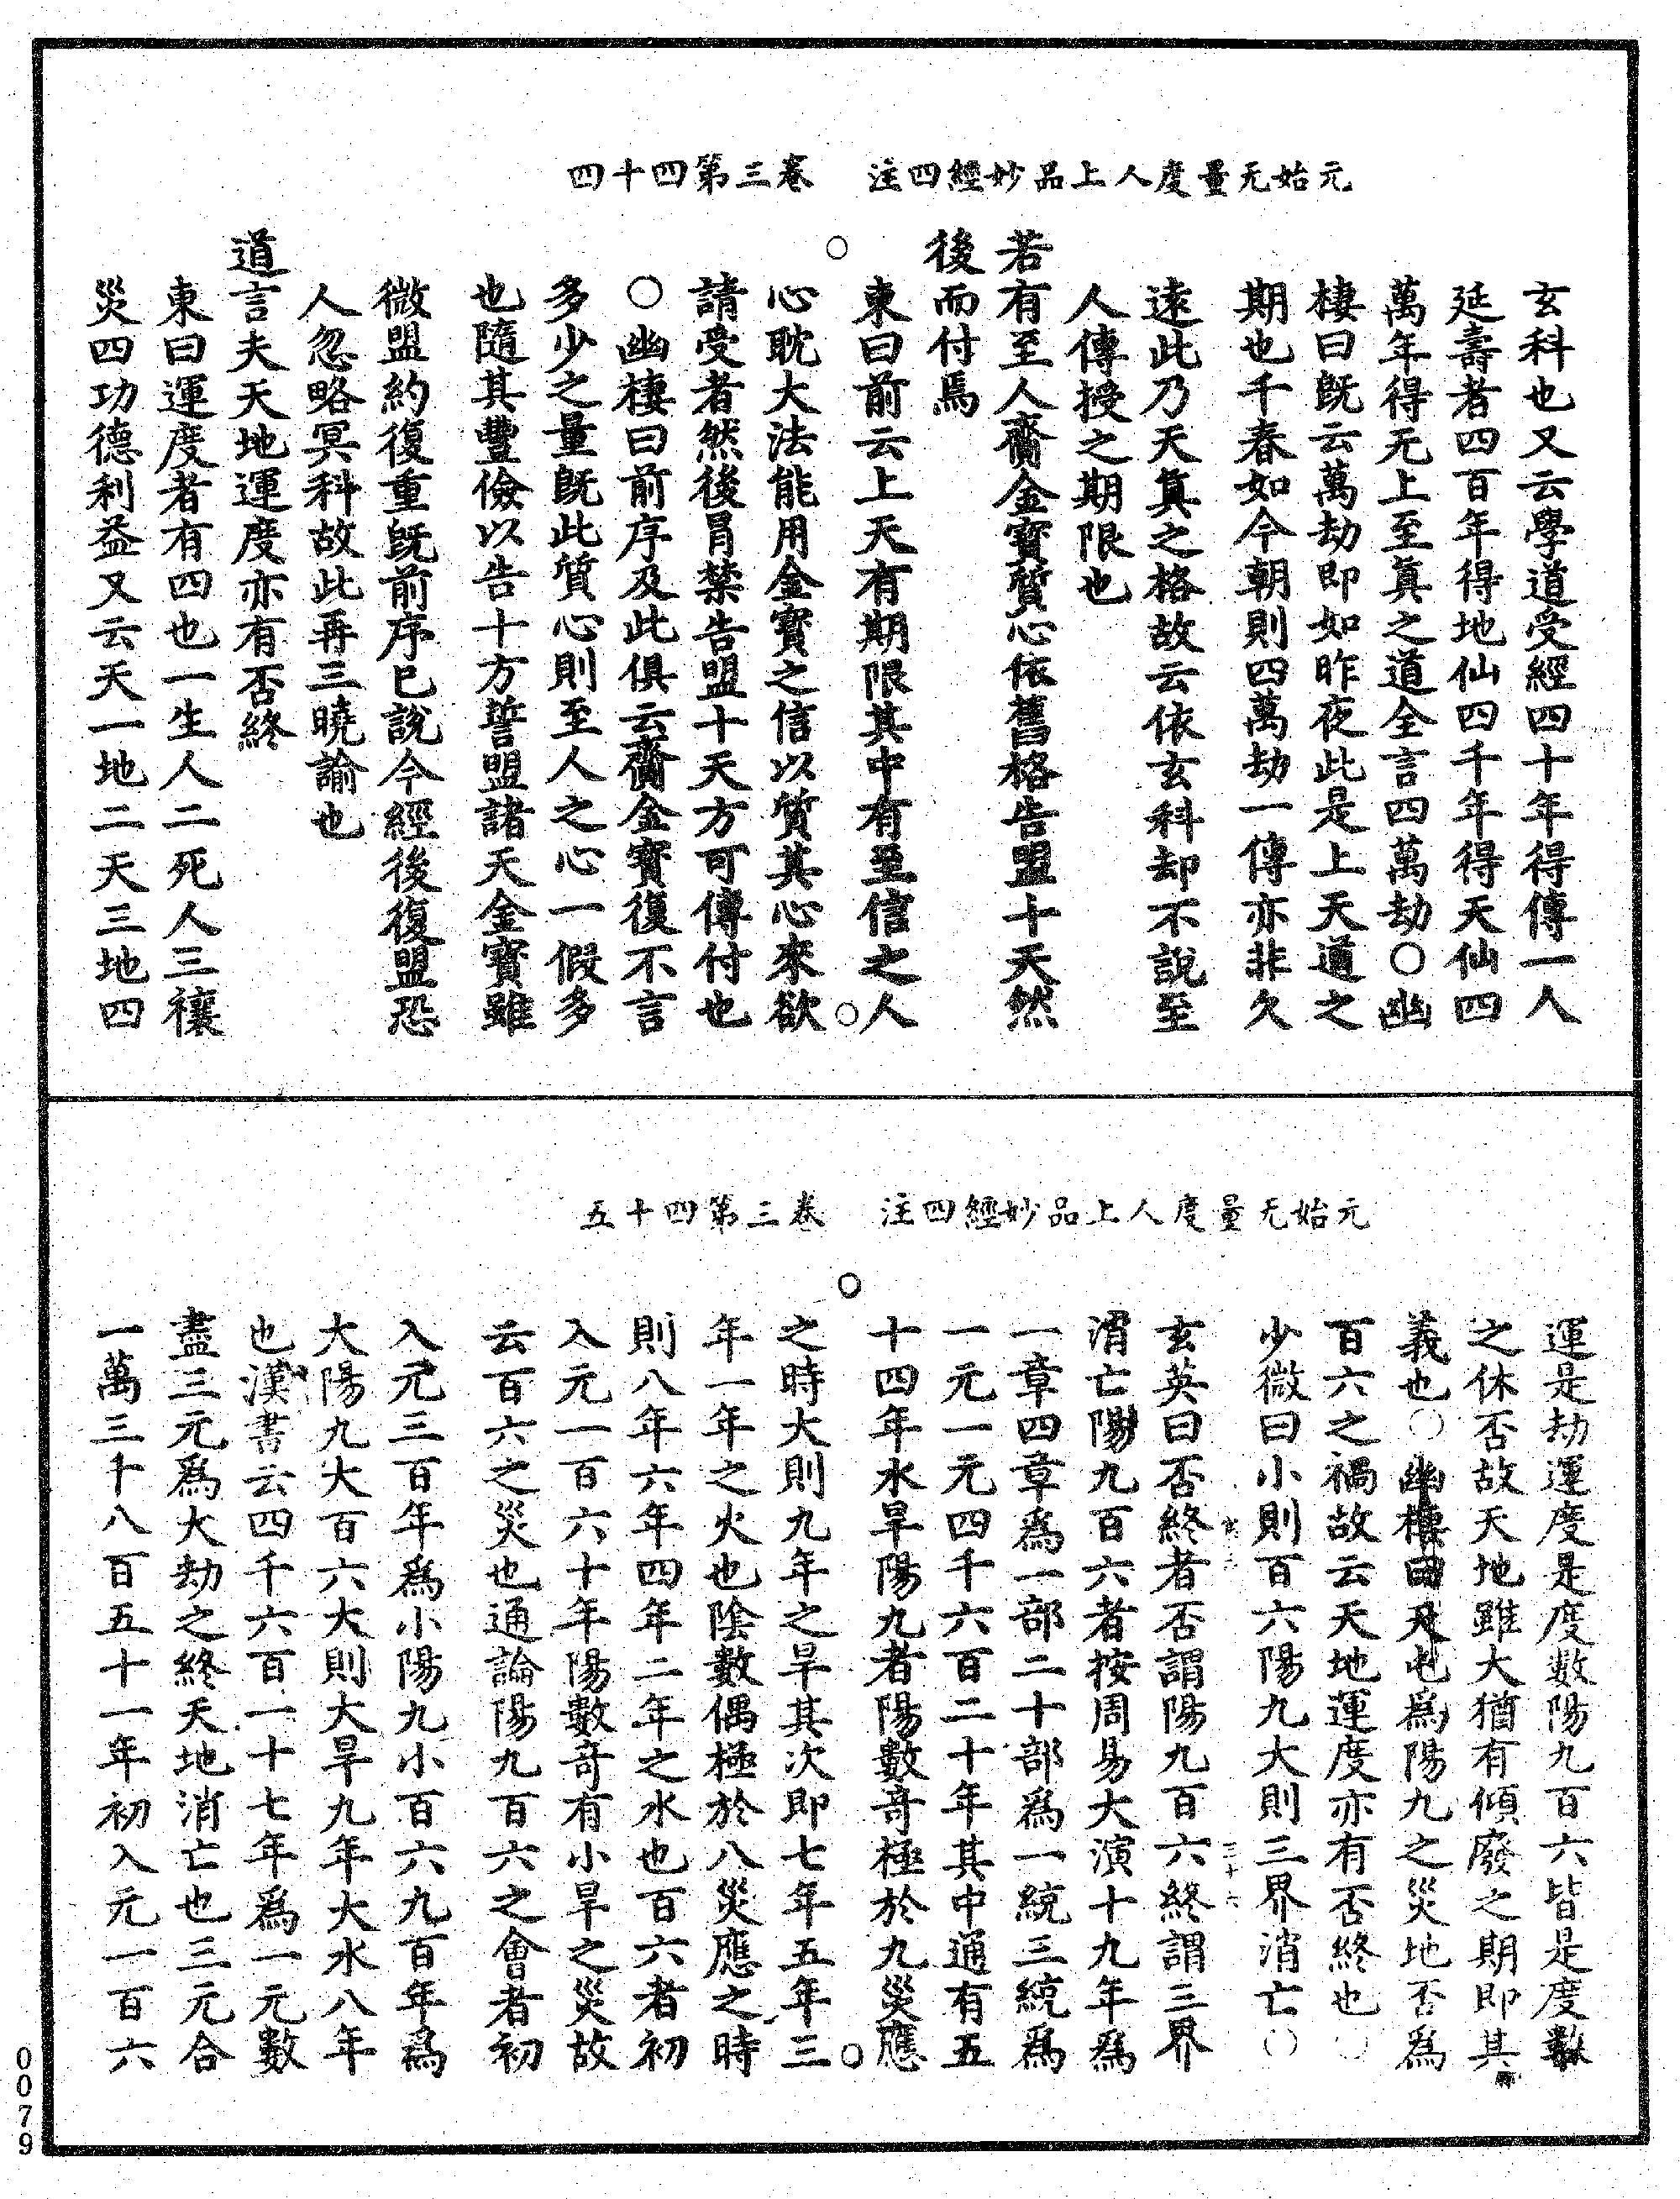 元始无量度人上品妙經四注　卷三第四十四
玄科也又云學道受經四十年得傳一人
延壽者四百年得地仙四千年得天仙四
萬年得无上至真之道全言四萬劫○幽
棲曰既云萬劫即如昨夜此是上天道之
期也千春如今朝則四萬劫一傳亦非久
遠此乃天真之格故云依玄科却不說至
人傳授之期限也
若有至人齎金寶質心依舊格告盟十天然
後而付焉
東曰前云上天有期限其中有至信之人
心耽大法能用金寶之信以質其心來欲
請受者然後冒禁告盟十天方可傳付也
○幽棲曰前序及此俱云齎金寶復不言
多少之量既此質心則至人之心一假多
也隨其豐儉以告十方誓盟諸天金寶雖
微盟約復重既前序已說今經後復盟恐
人忽略冥科故此再三曉諭也
道言夫天地運度亦有否終
東曰運度者有四也一生人二死人三禳
災四功德利益又云天一地二天三地四
元始无量度人上品妙經四注　卷三第四十五
運是劫運度是度數陽九百六皆是度數
之休否故天地雖大猶有傾廢之期即其
義也○幽棲曰天也爲陽九之災地否爲
百六之禍故云天地運度亦有否終也○
少微曰小則百六陽九大則三界消亡○
玄英曰否終者否謂陽九百六終謂三界
消亡陽九百六者按周易大演十九年爲
一章四章爲一部二十部爲一統三統爲
一元一元四千六百二十年其中通有五
十四年水旱陽九者陽數奇極於九災應
之時大則九年之旱其次即七年五年三
年一年之火也陰數偶極於八災應之時
則八年六年四年二年之水也百六者初
入元一百六十年陽數奇有小旱之災故
云百六之災也通論陽九百六之會者初
入元三百年爲小陽九小百六九百年爲
大陽九大百六大則大旱九年大水八年
也漢書云四千六百一十七年爲一元數
盡三元爲大劫之終天地消亡也三元合
一萬三千八百五十一年初入元一百六
0079